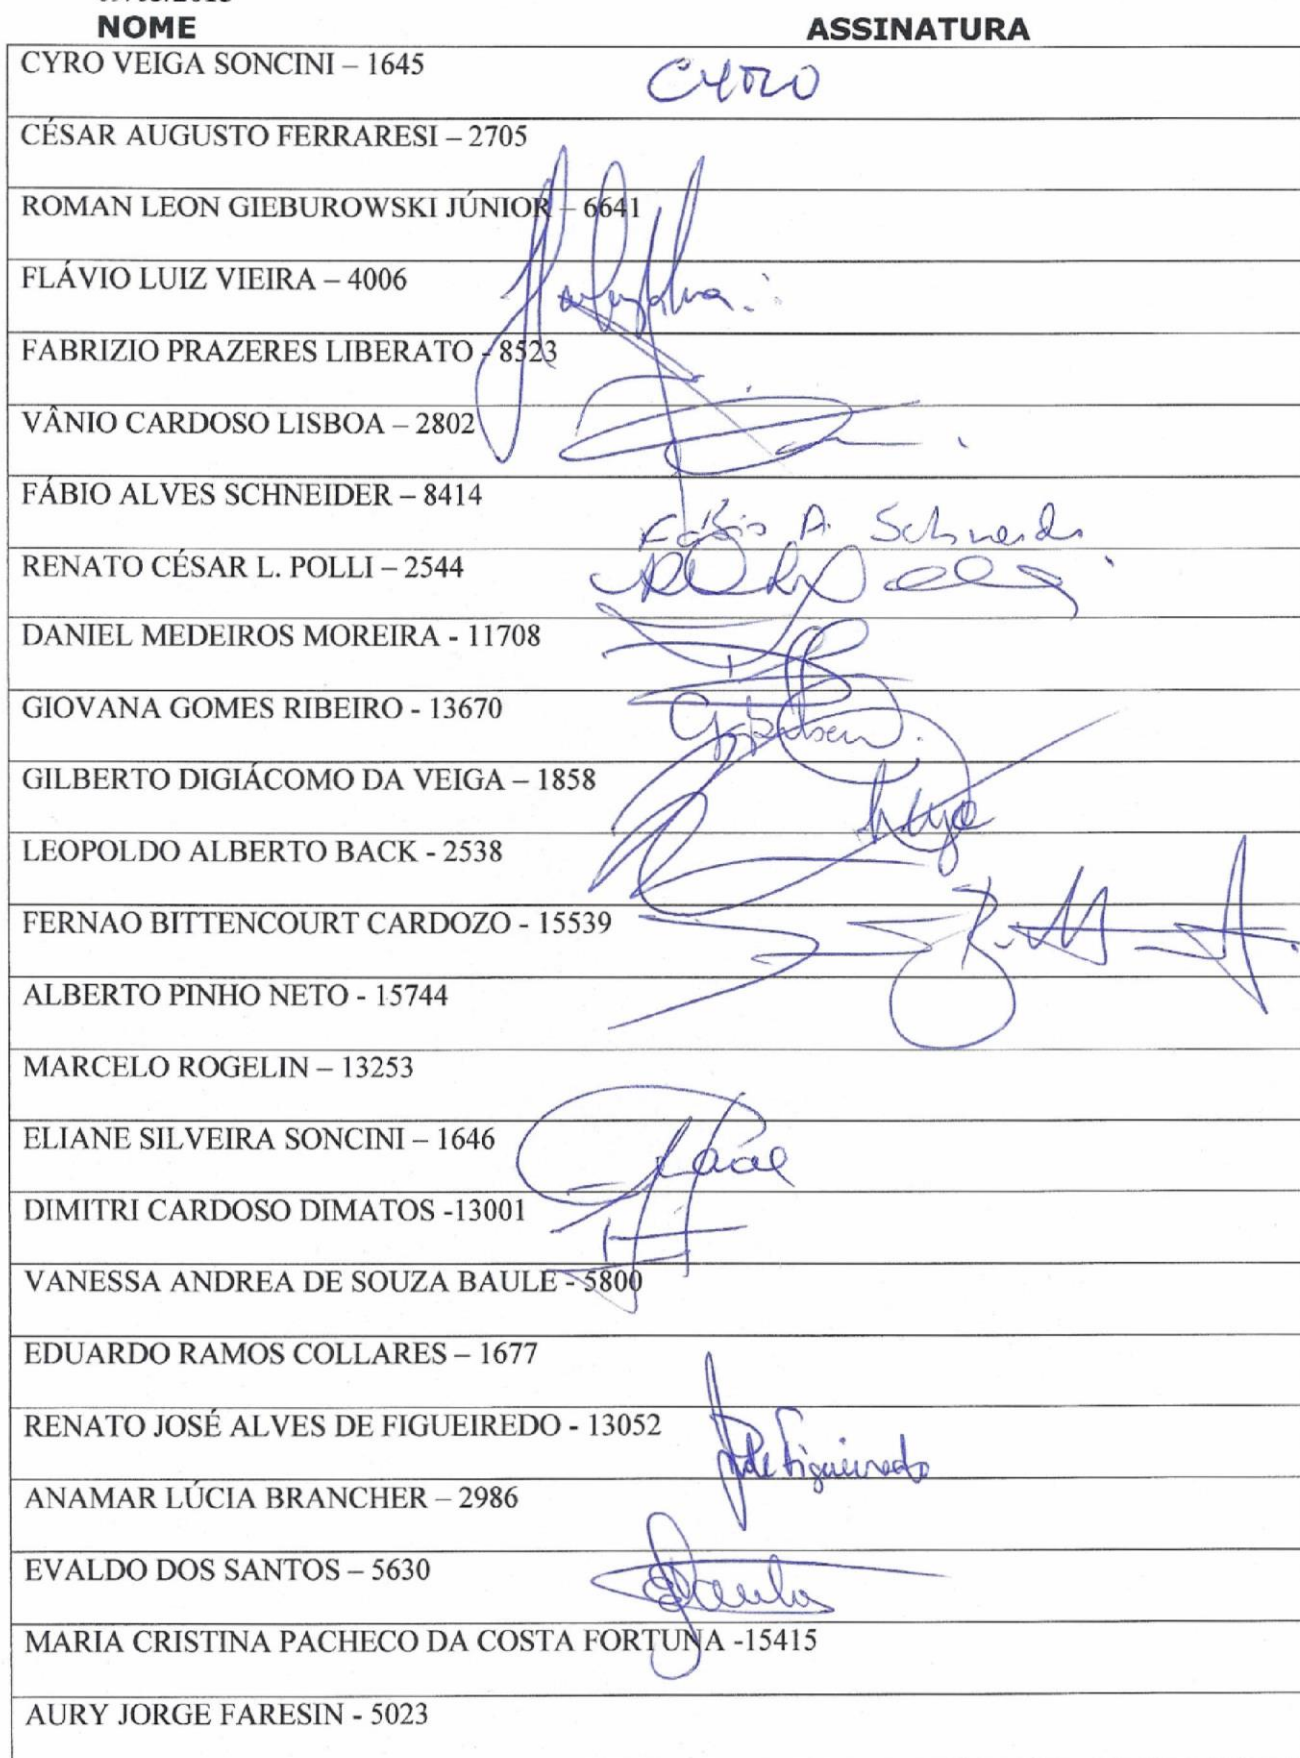 NOME ASSINATURA
CYRO VEIGA SONCINI – 1645 CYRO
CÉSAR AUGUSTO FERRARESI – 2705
ROMAN LEON GIEBUROWSKI JÚNIOR – 6641
FLÁVIO LUIZ VIEIRA – 4006
FABRIZIO PRAZERES LIBERATO - 8523
VÂNIO CARDOSO LISBOA – 2802
FÁBIO ALVES SCHNEIDER – 8414 Fábio A. Schneider
RENATO CÉSAR L. POLLI – 2544
DANIEL MEDEIROS MOREIRA - 11708
GIOVANA GOMES RIBEIRO - 13670
GILBERTO DIGIÁCOMO DA VEIGA – 1858
LEOPOLDO ALBERTO BACK - 2538
FERNAO BITTENCOURT CARDOZO - 15539
ALBERTO PINHO NETO - 15744
MARCELO ROGELIN – 13253
ELIANE SILVEIRA SONCINI – 1646
DIMITRI CARDOSO DIMATOS -13001
VANESSA ANDREA DE SOUZA BAULE - 5800
EDUARDO RAMOS COLLARES – 1677
RENATO JOSÉ ALVES DE FIGUEIREDO - 13052 Figueiredo
ANAMAR LÚCIA BRANCHER – 2986
EVALDO DOS SANTOS – 5630
MARIA CRISTINA PACHECO DA COSTA FORTUNA -15415
AURY JORGE FARESIN - 5023